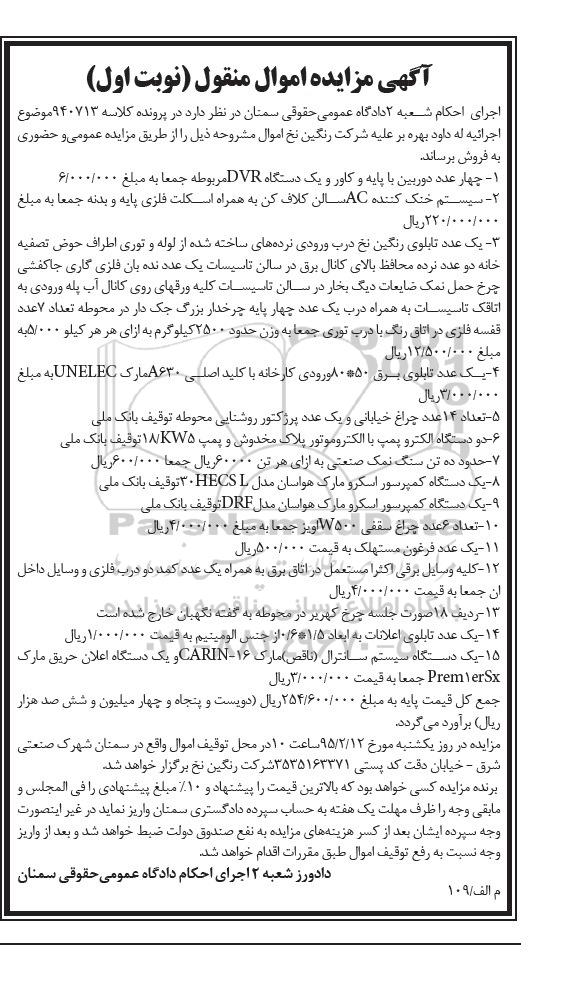 آگهی مزایده اموال منقول (نوبت اول)
اجرای احکام شعبه ۲دادگاه عمومی‌حقوقی سمنان در نظر دارد در پرونده کلاسه ۹۴۰۷۱۳موضوع
اجرائیه له داود بهره بر علیه شرکت رنگین نخ اموال مشروحه ذیل را از طریق مزایده عمومی‌و حضوری
به فروش برساند.
۱- چهار عدد دوربین با پایه و کاور و یک دستگاه DVRمربوطه جمعا به مبلغ ۶/۰۰۰/۰۰۰
۲- سیستم خنک کننده ACسالن کلاف کن به همراه اسکلت فلزی پایه و بدنه جمعا به مبلغ
۲۲۰/۰۰۰/۰۰۰ریال
۳- یک عدد تابلوی رنگین نخ درب ورودی نرده‌های ساخته شده از لوله و توری اطراف حوض تصفیه
خانه دو عدد نرده محافظ بالای کانال برق در سالن تاسیسات یک عدد نده بان فلزی گاری جاکفشی
چرخ حمل نمک ضایعات دیگ بخار در سالن تاسیسات کلیه ورقهای روی کانال آب پله ورودی به
اتاقک تاسیسات به همراه درب یک عدد چهار پایه چرخدار بزرگ جک دار در محوطه تعداد ۷عدد
قفسه فلزی در اتاق رنگ با درب توری جمعا به وزن حدود ۲۵۰۰کیلوگرم به ازای هر هر کیلو ۵/۰۰۰به
مبلغ ۱۲/۵۰۰/۰۰۰ریال
۴-یک عدد تابلوی برق ۵۰*۸۰ورودی کارخانه با کلید اصلی A۶۳۰مارک UNELECبه مبلغ
۳/۰۰۰/۰۰۰ریال
۵-تعداد ۱۴عدد چراغ خیابانی و یک عدد پرژکتور روشنایی محوطه توقیف بانک ملی
۶-دو دستگاه الکترو پمپ با الکتروموتور پلاک مخدوش و پمپ ۱۸/KW۵توقیف بانک ملی
۷-حدود ده تن سنگ نمک صنعتی به ازای هر تن ۶۰۰۰۰ریال جمعا ۶۰۰/۰۰۰ریال
۸-یک دستگاه کمپرسور اسکرو مارک هواسان مدل ۳۰HECS Lتوقیف بانک ملی
۹-یک دستگاه کمپرسور اسکرو مارک هواسان مدلDRFتوقیف بانک ملی
۱۰-تعداد ۶عدد چراغ سقفی W۵۰۰آویز جمعا به مبلغ ۴/۰۰۰/۰۰۰ریال
۱۱-یک عدد فرغون مستهلک به قیمت ۵۰۰/۰۰۰ریال
۱۲-کلیه وسایل برقی اکثرا مستعمل در اتاق برق به همراه یک عدد کمد دو درب فلزی و وسایل داخل
ان جمعا به قیمت ۴/۰۰۰/۰۰۰ریال
۱۳-ردیف ۱۸صورت جلسه چرخ کهریر در محوطه به گفته نگهبان خارج شده است
۱۴-یک عدد تابلوی اعلانات به ابعاد ۱/۵*۰/۶از جنس الومینیم به قیمت ۱/۰۰۰/۰۰۰ریال
۱۵-یک دستگاه سیستم سانترال (ناقص)مارک CARIN-۱۶و یک دستگاه اعلان حریق مارک
Prem۱erSx جمعا به قیمت ۳/۰۰۰/۰۰۰ریال
جمع کل قیمت پایه به مبلغ ۲۵۴/۶۰۰/۰۰۰ریال (دویست و پنجاه و چهار میلیون و شش صد هزار
ریال) برآورد می‌گردد.
مزایده در روز یکشنبه مورخ ۹۵/۲/۱۲ساعت ۱۰در محل توقیف اموال واقع در سمنان شهرک صنعتی
شرق - خیابان دقت کد پستی ۳۵۳۵۱۶۳۳۷۱شرکت رنگین نخ برگزار خواهد شد.
برنده مزایده کسی خواهد بود که بالاترین قیمت را پیشنهاد و ۱۰٪ مبلغ پیشنهادی را فی المجلس و
مابقی وجه را ظرف مهلت یک هفته به حساب سپرده دادگستری سمنان واریز نماید در غیر اینصورت
وجه سپرده ایشان بعد از کسر هزینه‌های مزایده به نفع صندوق دولت ضبط خواهد شد و بعد از واریز
وجه نسبت به رفع توقیف اموال طبق مقررات اقدام خواهد شد.
دادورز شعبه ۲ اجرای احکام دادگاه عمومی‌حقوقی سمنان
م الف/۱۰۹
ParsNamadData
پایگاه اطلاع رسانی مناقصه و مزایده